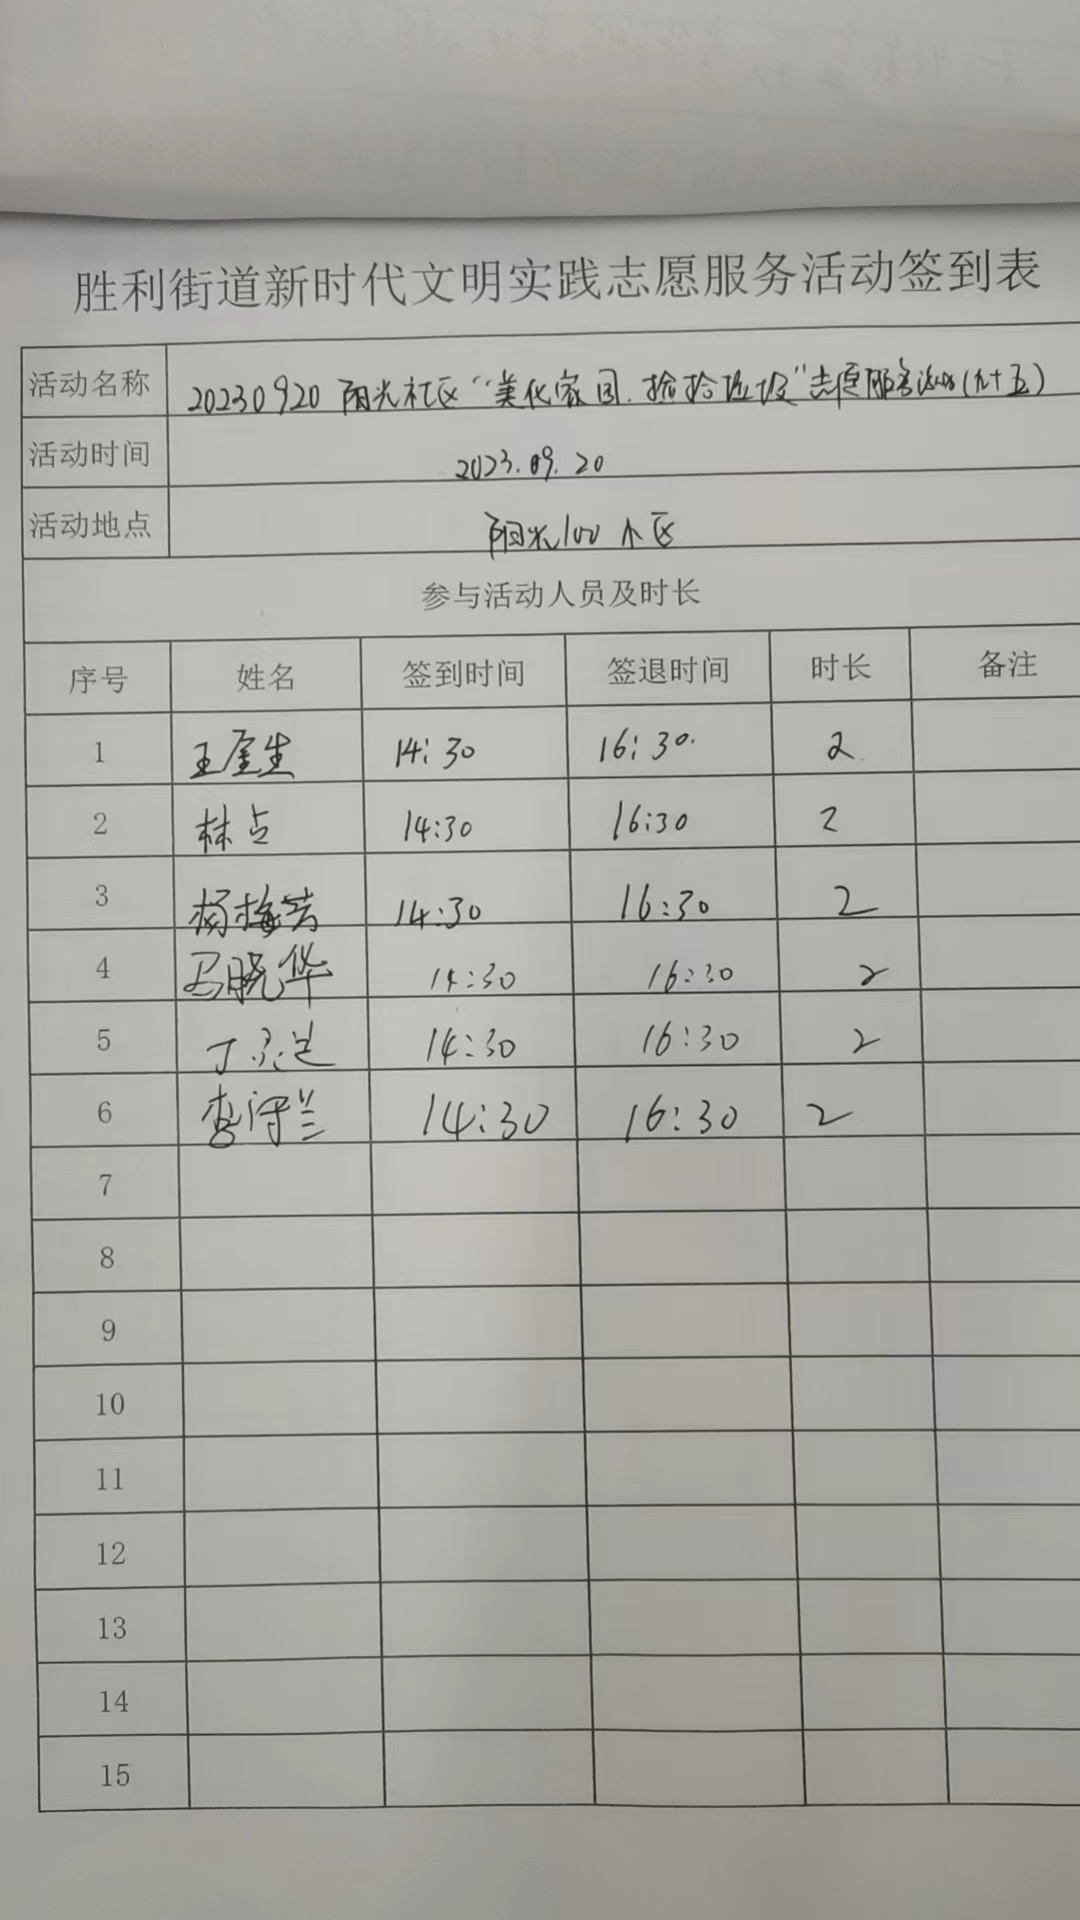 胜利街道新时代文明实践志愿服务活动签到表
活动名称 20230920 阳光社区“美化家园.捡拾垃圾”志愿服务活动(九十五)
活动时间 2023.09.20
活动地点 阳光100小区
参与活动人员及时长
序号 姓名 签到时间 签退时间 时长 备注
1 14:30 16:30. 2
2 林占 14:30 16:30 2
3 杨梅芳 14:30 16:30 2
4 马晓华 14:30 16:30 2
5 丁 14:30 16:30 2
6 李 兰 14:30 16:30 2
7
8
9
10
11
12
13
14
15